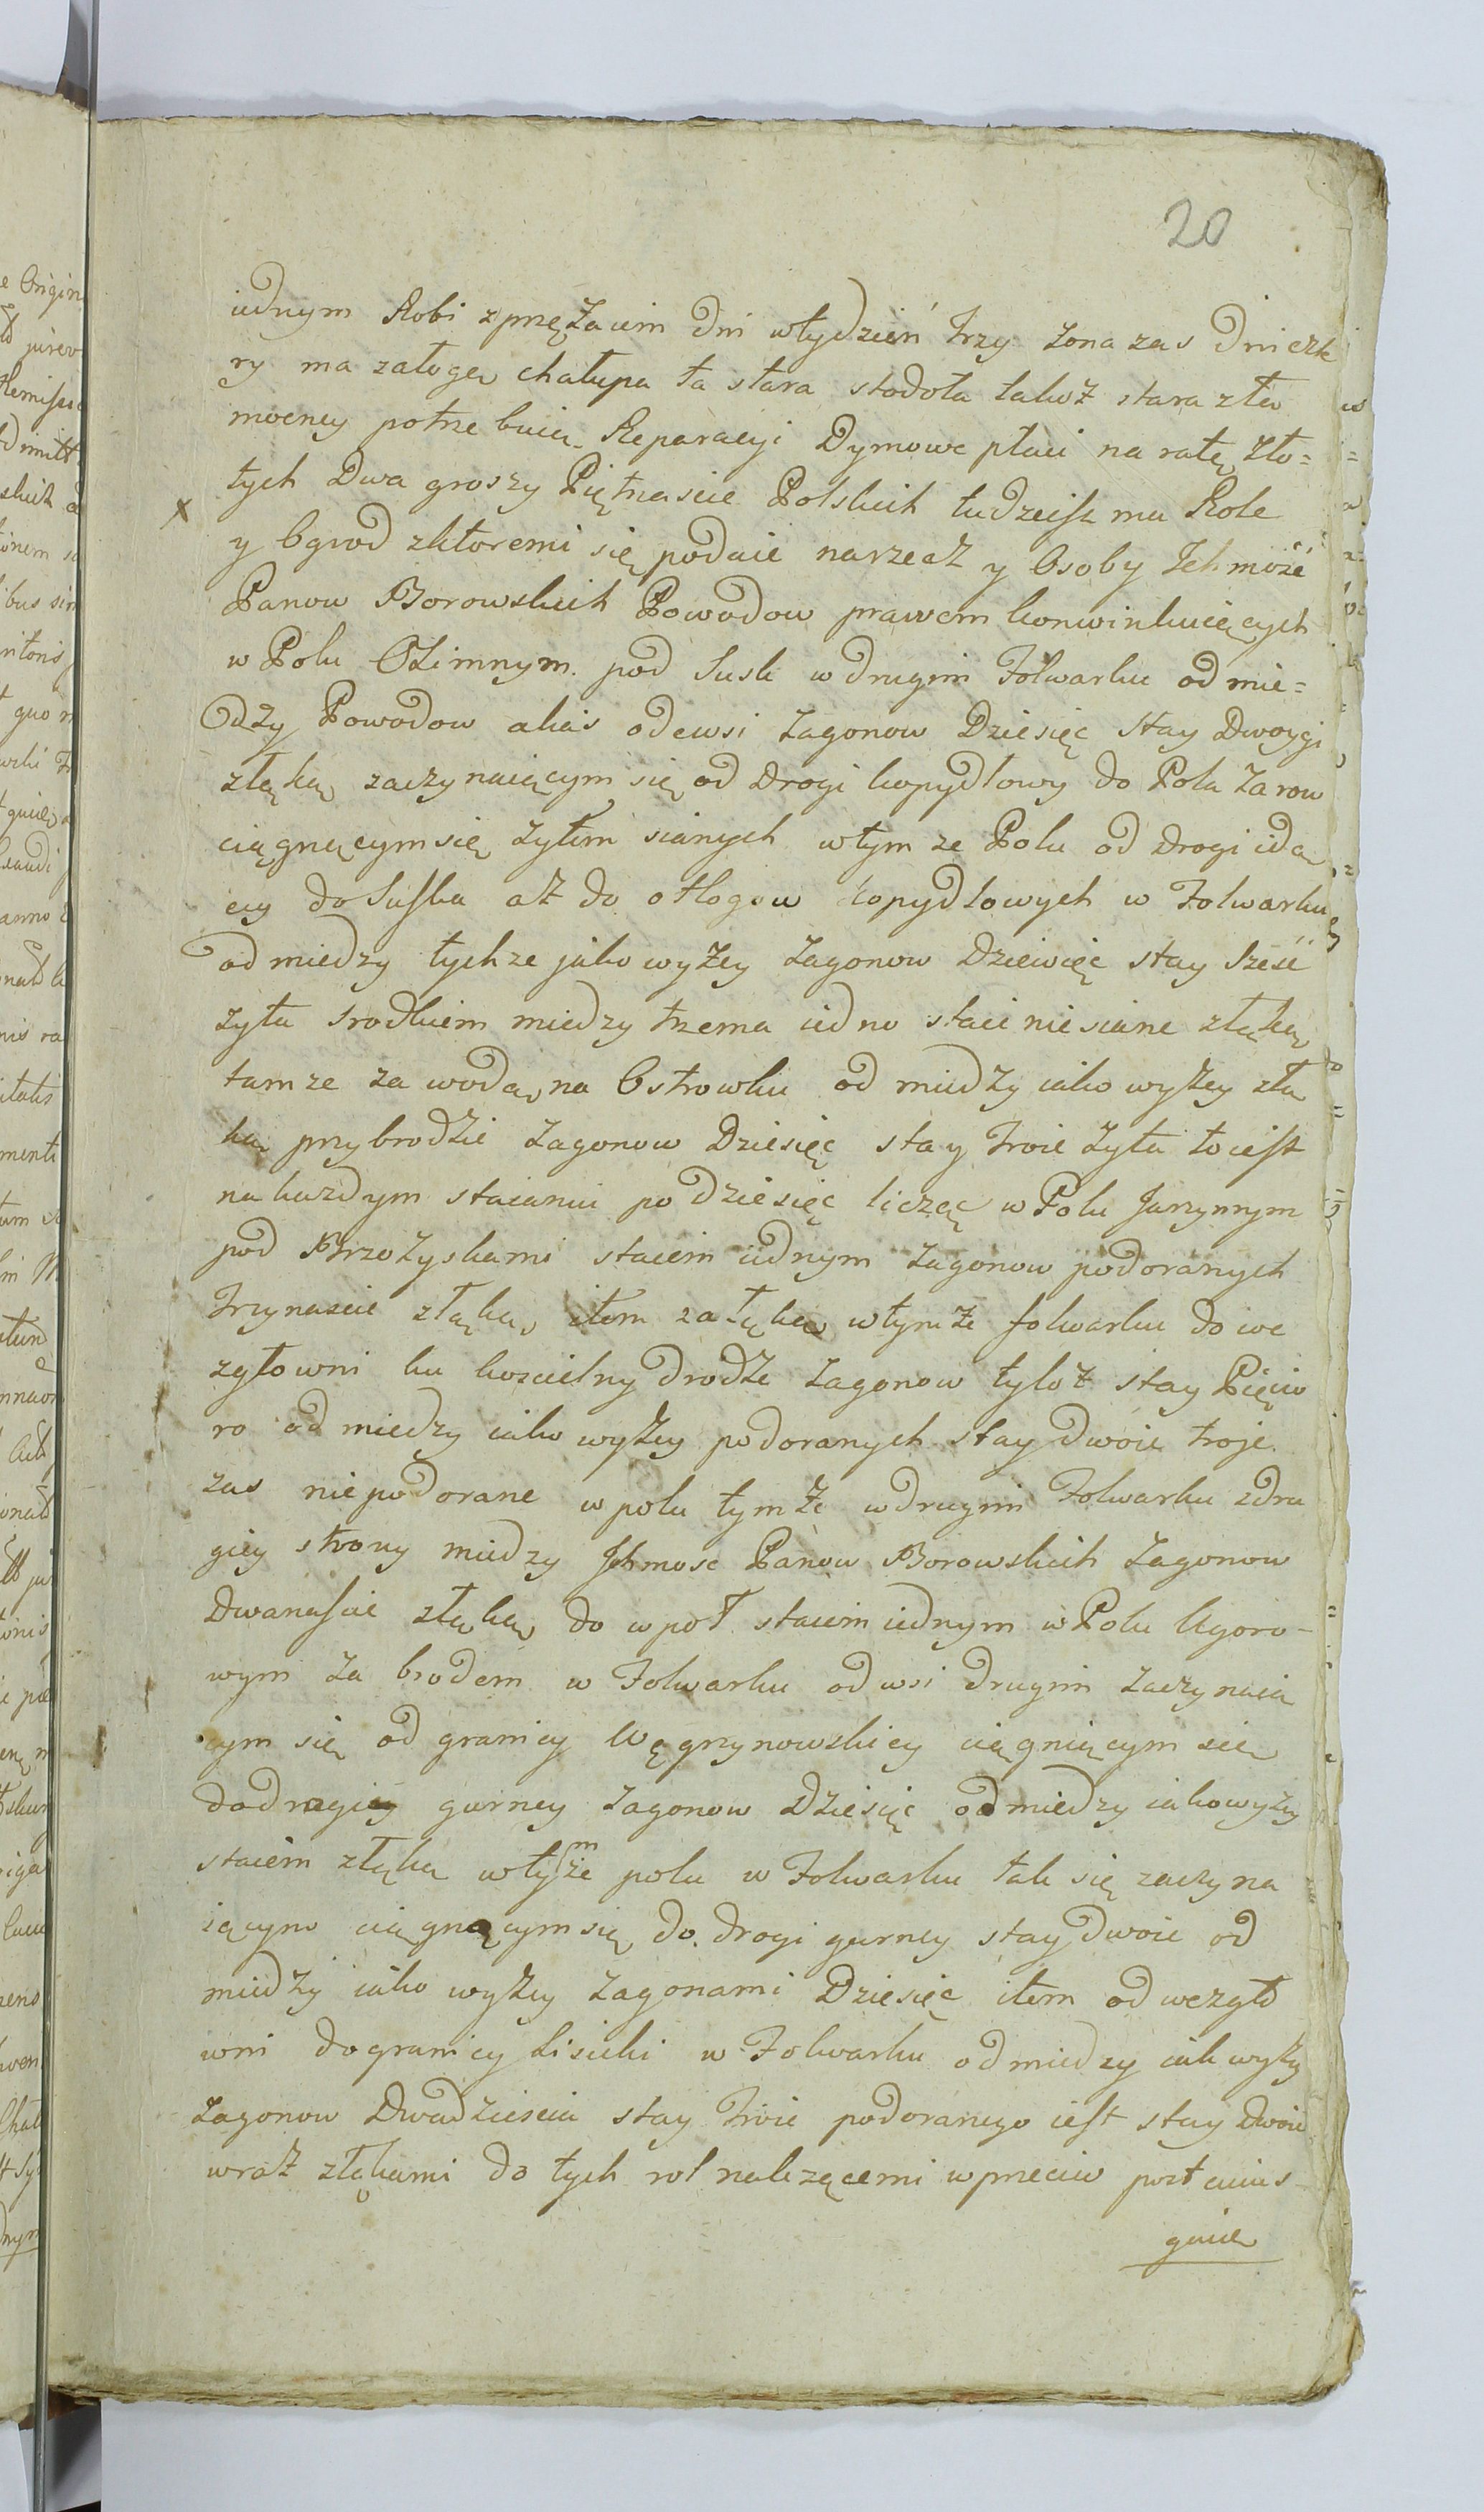 20
iednym Robi zprzężaiem dni wtydzień Trzy żona zas dni czte
ry ma załogę chałupa ta stara stodoła takoż stara zła
mocney potrzebuią Reparacyi Dymowe płaci na ratę zło=
tych Dwa groszy Piętnascie Polskich tudzeisz ma Role
y Ogrod zktoremi się podaie narzecz y Osoby Jchmość
Panow Borowskich Powodow prawem konwinkuiących
w Polu Ozimnym pod Susk w drugim Folwarku od mie=
dzy Powodow alias odewsi Zagonow Dziesięć stay Dwoygi
złąką zaczynaiącym się od Drogi kopydłowy do Pola Zarow
ciągnącym się żytem sianych wtym ze Polu od Drogi idą
cey do Suska aż do otłogow kopydłowych w Folwarku
od miedzy tychze jako wyżey Zagonow Dziewięć stay sześć
żyta srodkiem miedzy trzema iedno staie niesiane złąką
tamze za wodą na Ostrowku od miedzy iako wyżey złą
ką przybrodzie Zagonow Dziesięć stay Troie żyta toiest
nakażdym staianiu po dziesięć licząc w Polu Jarzynnym
pod Brzozyskami staiem iednym Zagonow podoranych
Trzynascie złąką item załąką wtymże folwarku do we
zgłowni ku koscielny drodze Zagonow tyloż stay Pięcio
ro od miedzy iako wyżey podoranych stay dwoie troje
zas niepodorane w polu tymże wdrugim Folwarku zdru
giey strony miedzy Jchmosc Panow Borowskich Zagonow
Dwanascie złąką do wpoł staiem iednym w Polu Ugoro-
wym Za brodem w Folwarku od wsi drugim zaczynaią
cym się od granicy Węgrzynowskiey ciągniącym się
dodrogiey gurney Zagonow Dziesięć od miedzy iakowyżey
staiem złąką wtymże polu w Folwarku tak się zaczyna
iącym ciągnącym się do drogi gurney stay dwoie od
miedzy iako wyżey Zagonami Dziesięć item od wezgło
wni do granicy Lisieki w Folwarku od miedzy iak wyży
Zagonow Dwadziescia stay Troie podoranego iest stay Dwoie
wraz złąkami do tych rol nalezącemi wprzeciw poztenius-
guie